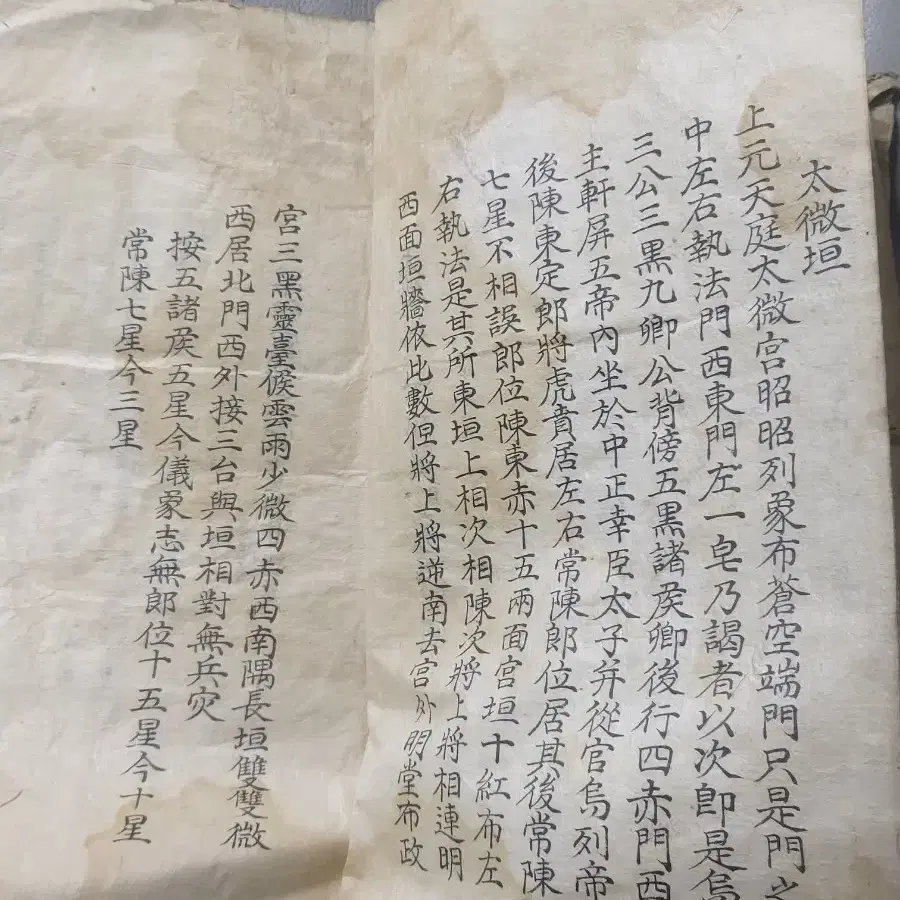 太微垣
上元天庭太微宮昭昭列象布蒼空端門只是門之
中左右執法門西東門左一皂乃謁者以次卽是烏
三公三黑九卿公背傍五黑諸侯卿後行四赤門西
主軒屏五帝內坐於中正幸臣太子幷從官烏列帝
後陳東定郎將虎賁居左右常陳郎位居其後常陳
七星不相誤郎位陳東赤十五兩面宮垣十紅布左
右執法是其所東垣上相次相陳次將上將相連明
西面垣牆依此數但將上將逆南去宮外明堂布政
宮三黑靈臺候雲雨少微四赤西南隅長垣雙雙微
西居北門西外接三台與垣相對無兵灾
按五諸侯五星今儀象志無郎位十五星今十星
常陳七星今三星